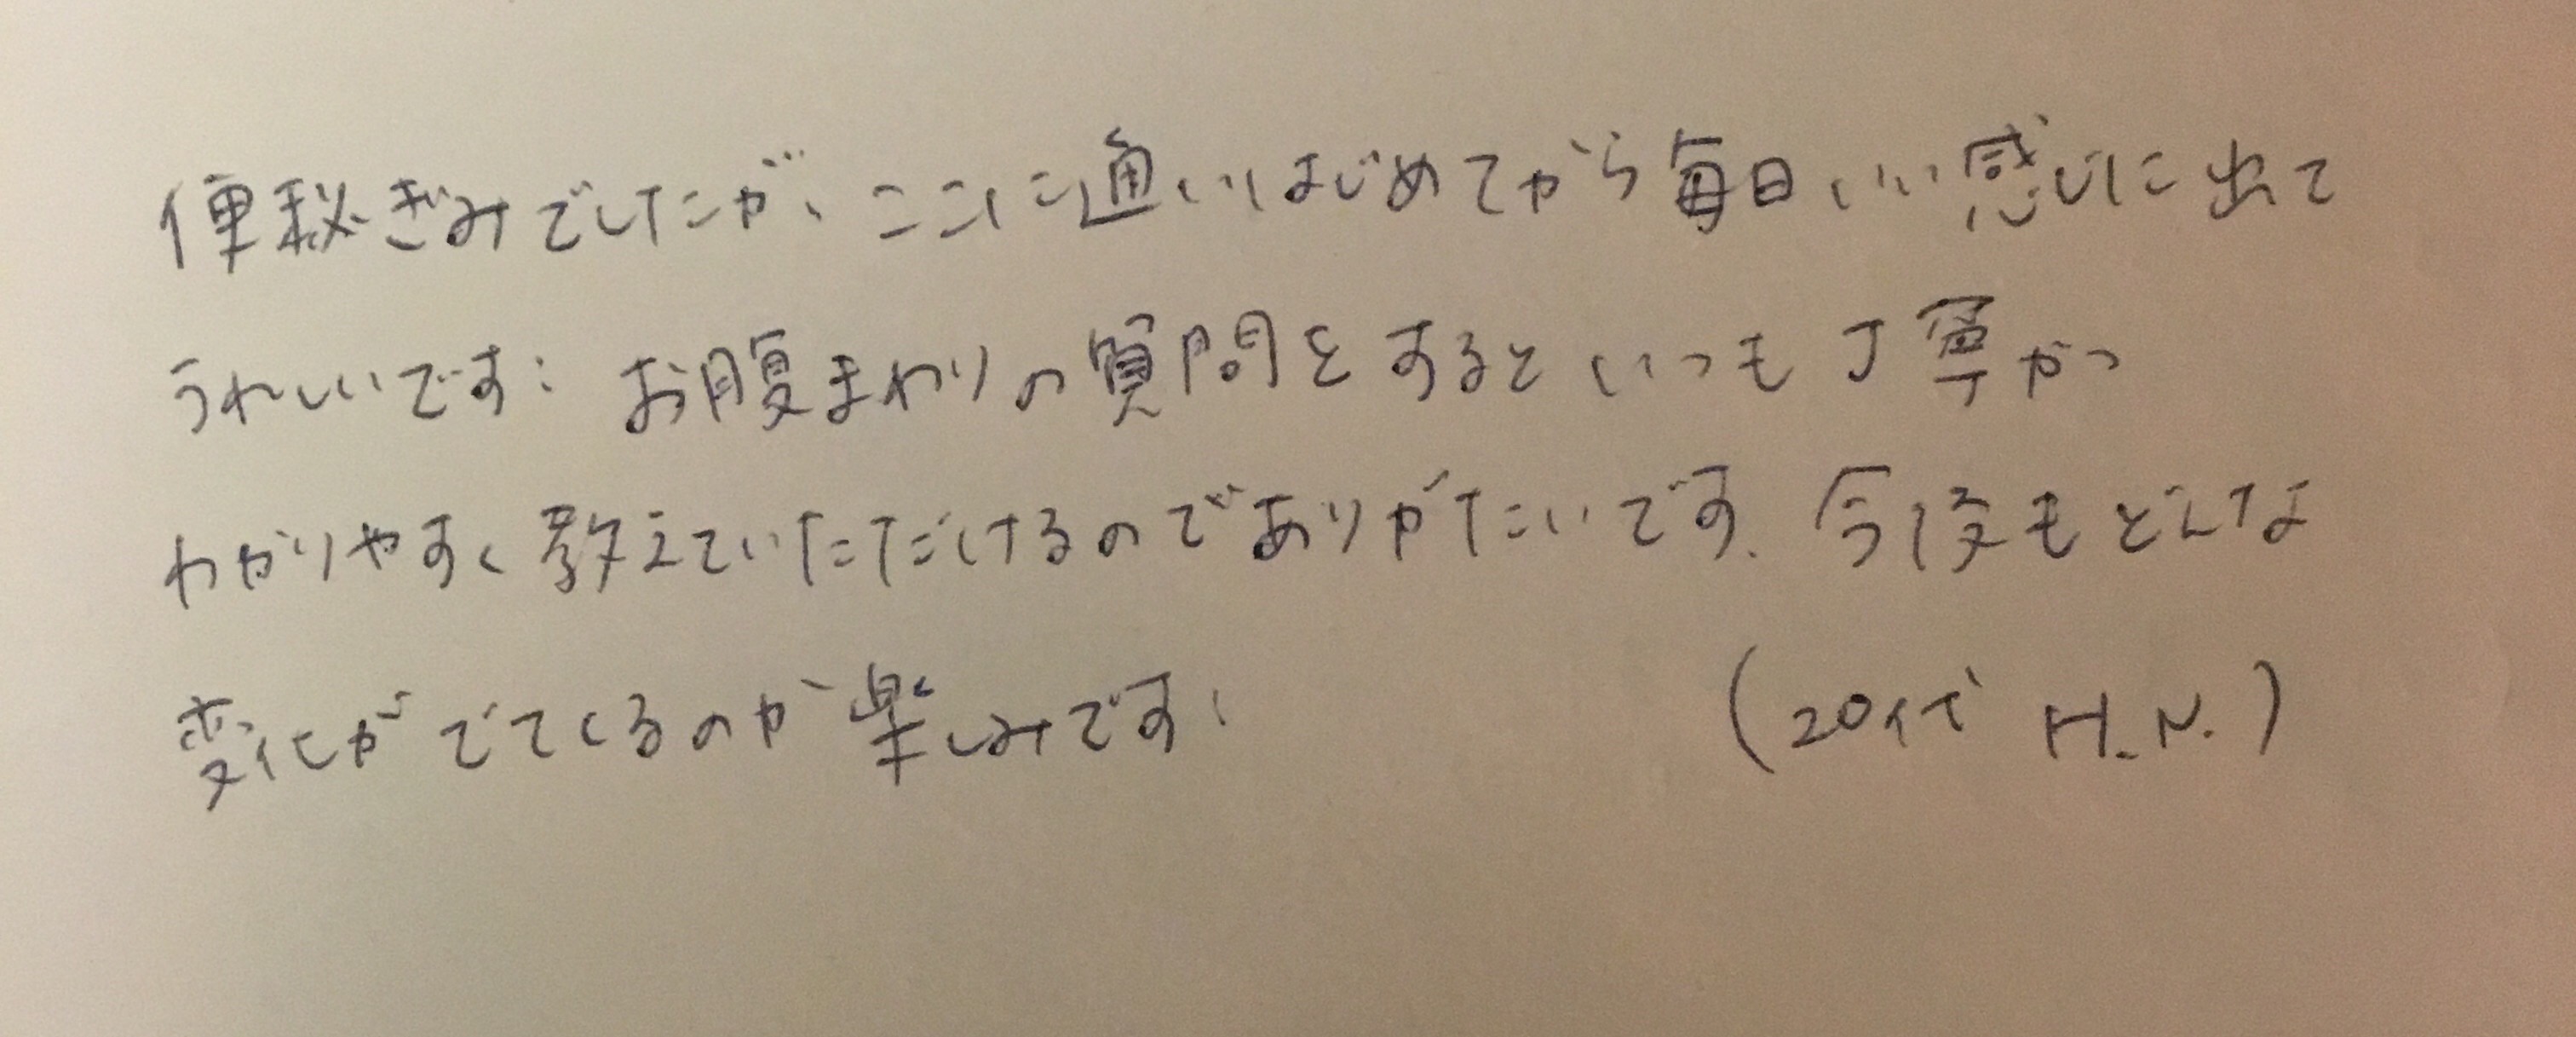 便秘ぎみでしたが、ここに通いはじめてから毎日いい感じに出て
うれしいです! お腹まわりの質問をするといつも丁寧かつ
わかりやすく教えていただけるのでありがたいです。今後もどんな
変化がでてくるのが楽しみです!
(20代 H.N.)